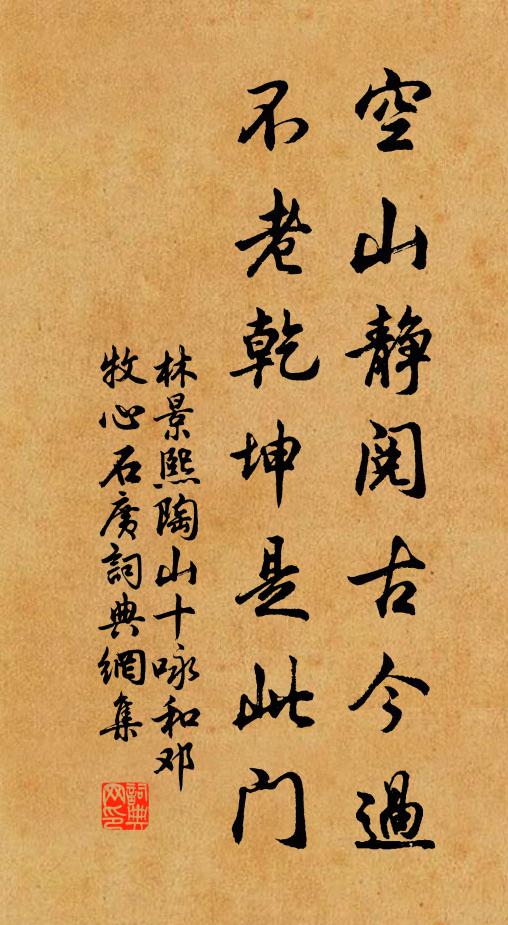 空山静阅古今過
不老乾坤是此门
林景熙陶山十咏和邓
牧心石廣詞典網集
詞典网印